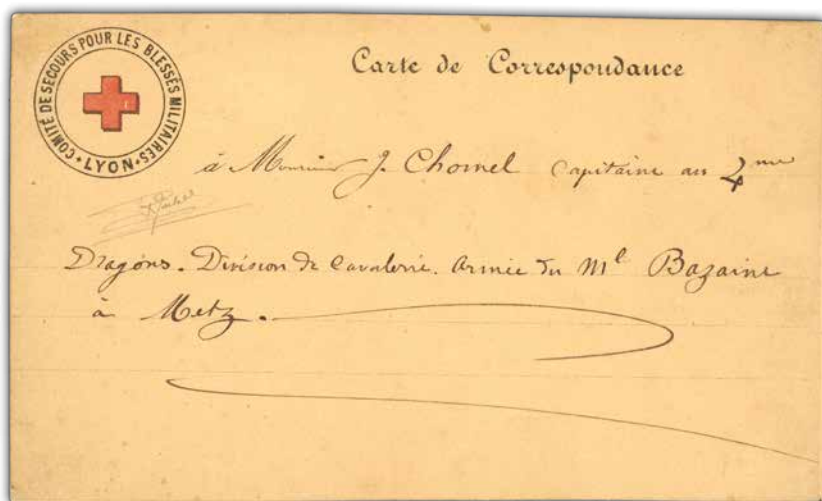 COMITÉ DE SECOURS POUR LES BLESSÉS MILITAIRES · LYON ·
Carte de Correspondance
à Monsieur J. Chomel Capitaine au 4me
Dragons. Division de Cavalerie. Armée du Ml Bazaine
à Metz.